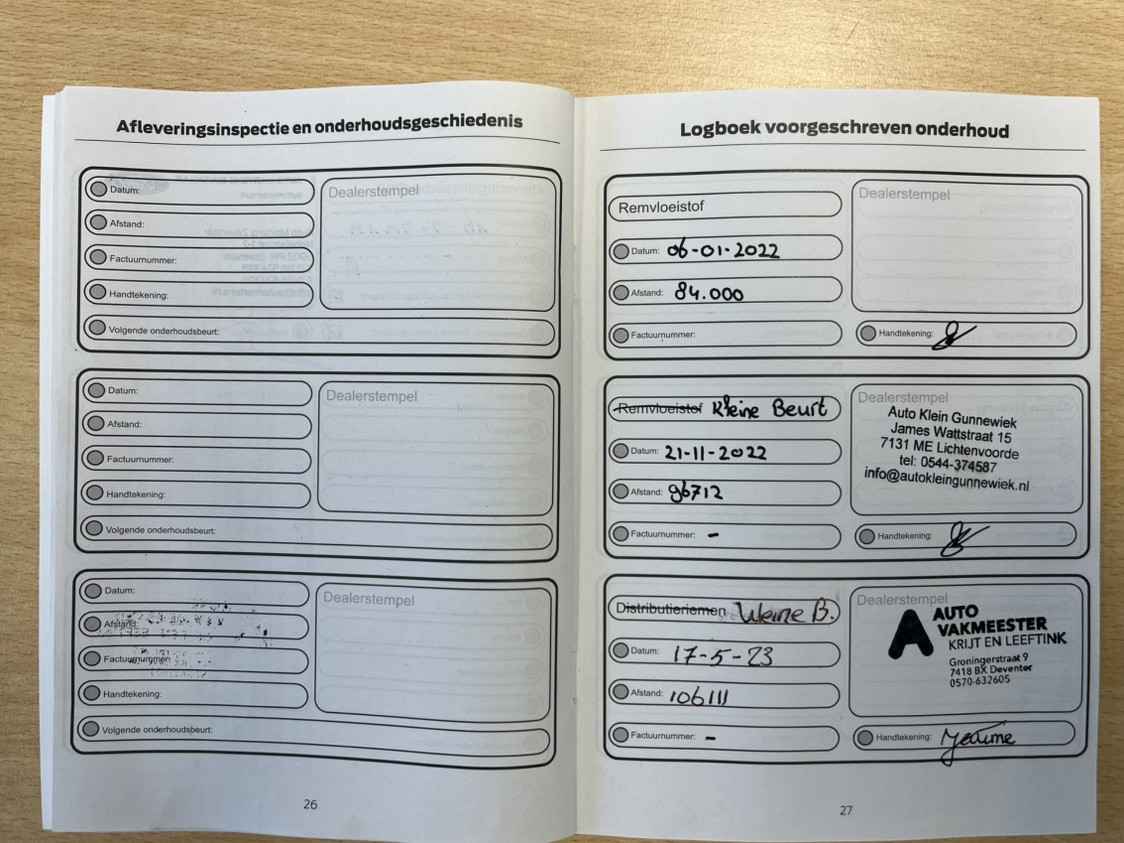 Afleveringsinspectie en onderhoudsgeschiedenis
Datum:
Afstand:
Factuurnummer:
Handtekening:
Volgende onderhoudsbeurt:
Dealerstempel
Datum:
Afstand:
Factuurnummer:
Handtekening:
Volgende onderhoudsbeurt:
Dealerstempel
Datum:
Afstand:
Factuurnummer:
Handtekening:
Volgende onderhoudsbeurt:
Dealerstempel
26
Logboek voorgeschreven onderhoud
Remvloeistof
Datum: 06-01-2022
Afstand: 84.000
Factuurnummer:
Dealerstempel
Handtekening:
Remvloeistof Kleine Beurt
Datum: 21-11-2022
Afstand: 96712
Factuurnummer: -
Dealerstempel
Auto Klein Gunnewiek
James Wattstraat 15
7131 ME Lichtenvoorde
tel: 0544-374587
info@autokleingunnewiek.nl
Handtekening:
Distributieriemen Kleine B.
Datum: 17-5-23
Afstand: 106111
Factuurnummer: -
Dealerstempel
AUTO
VAKMEESTER
KRIJT EN LEEFTINK
Groningerstraat 9
7418 BX Deventer
0570-632605
Handtekening:
27